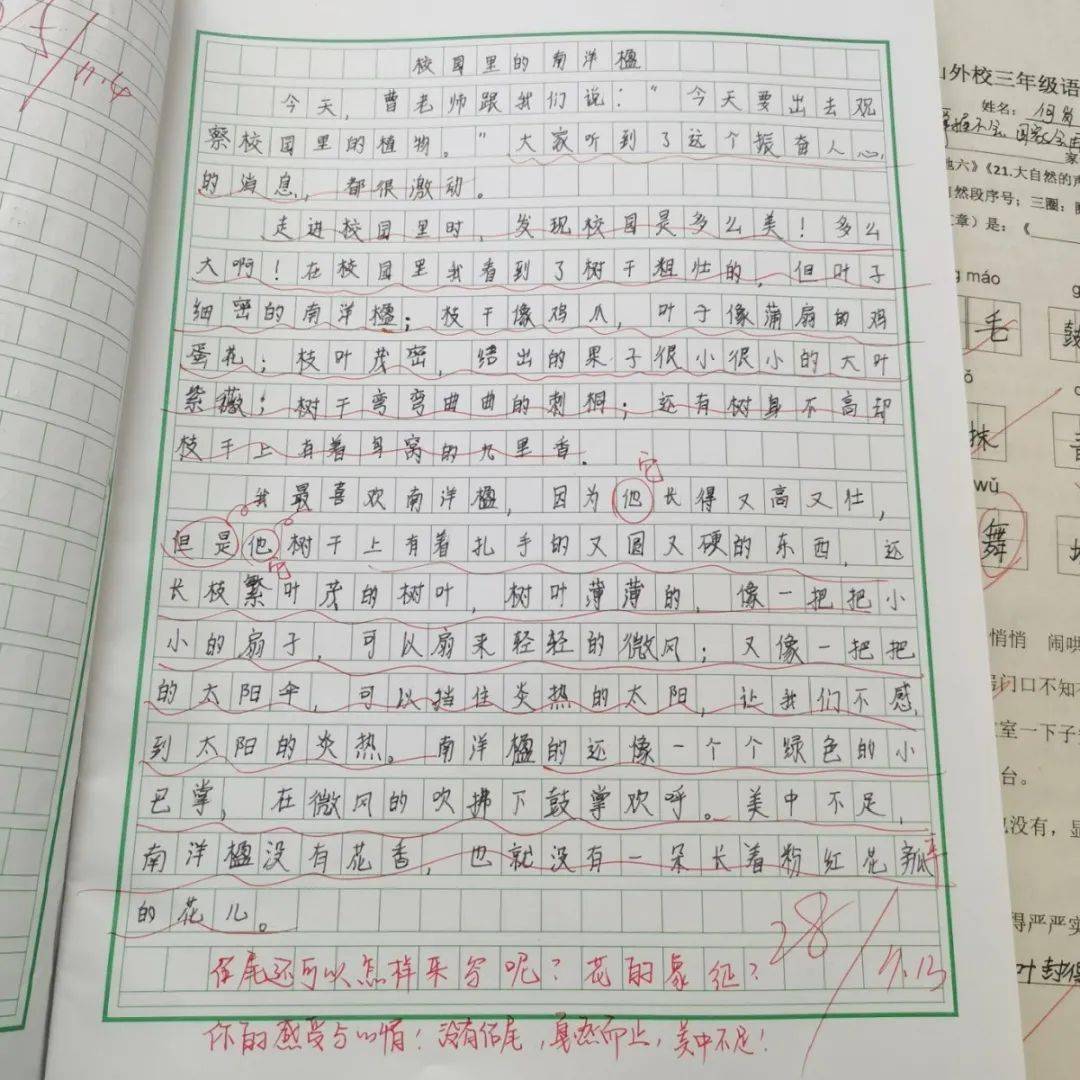 校园里的南洋楹
今天,曹老师跟我们说:“今天要出去观
察校园里的植物。”大家听到了这个振奋人心
的消息,都很激动。
走进校园里时,发现校园是多么美!多么
大啊!在校园里我看到了树干粗壮的,但叶子
细密的南洋楹;枝干像鸡爪,叶子像蒲扇的鸡
蛋花;枝叶茂密,结出的果子很小很小的大叶
紫薇;树干弯弯曲曲的刺桐;还有树身不高却
枝干上有着鸟窝的九里香.
它
我最喜欢南洋楹,因为他长得又高又壮,
但是他树干上有着扎手的又圆又硬的东西,还
它
长枝繁叶茂的树叶,树叶薄薄的,像一把把小
小的扇子,可以扇来轻轻的微风;又像一把把
的太阳伞,可以挡住炎热的太阳,让我们不感
到太阳的炎热。南洋楹的还像一个个绿色的小
巴掌,在微风的吹拂下鼓掌欢呼。美中不足,
南洋楹没有花香,也就没有一朵长着粉红花瓣
的花儿。
28
9.13
结尾还可以怎样来写呢?花的象征?
你的感受与心情!没有结尾,戛然而止,美中不足!
11.4
山外校三年级语
姓名:
家
《21.大自然的声
自然段序号;三圈:圈
文章)是:《
g máo
毛
鼓
抹
wǔ
舞
悄悄 闹哄
门口不知
室一下子
台。
没有,显
得严严实
叶封得